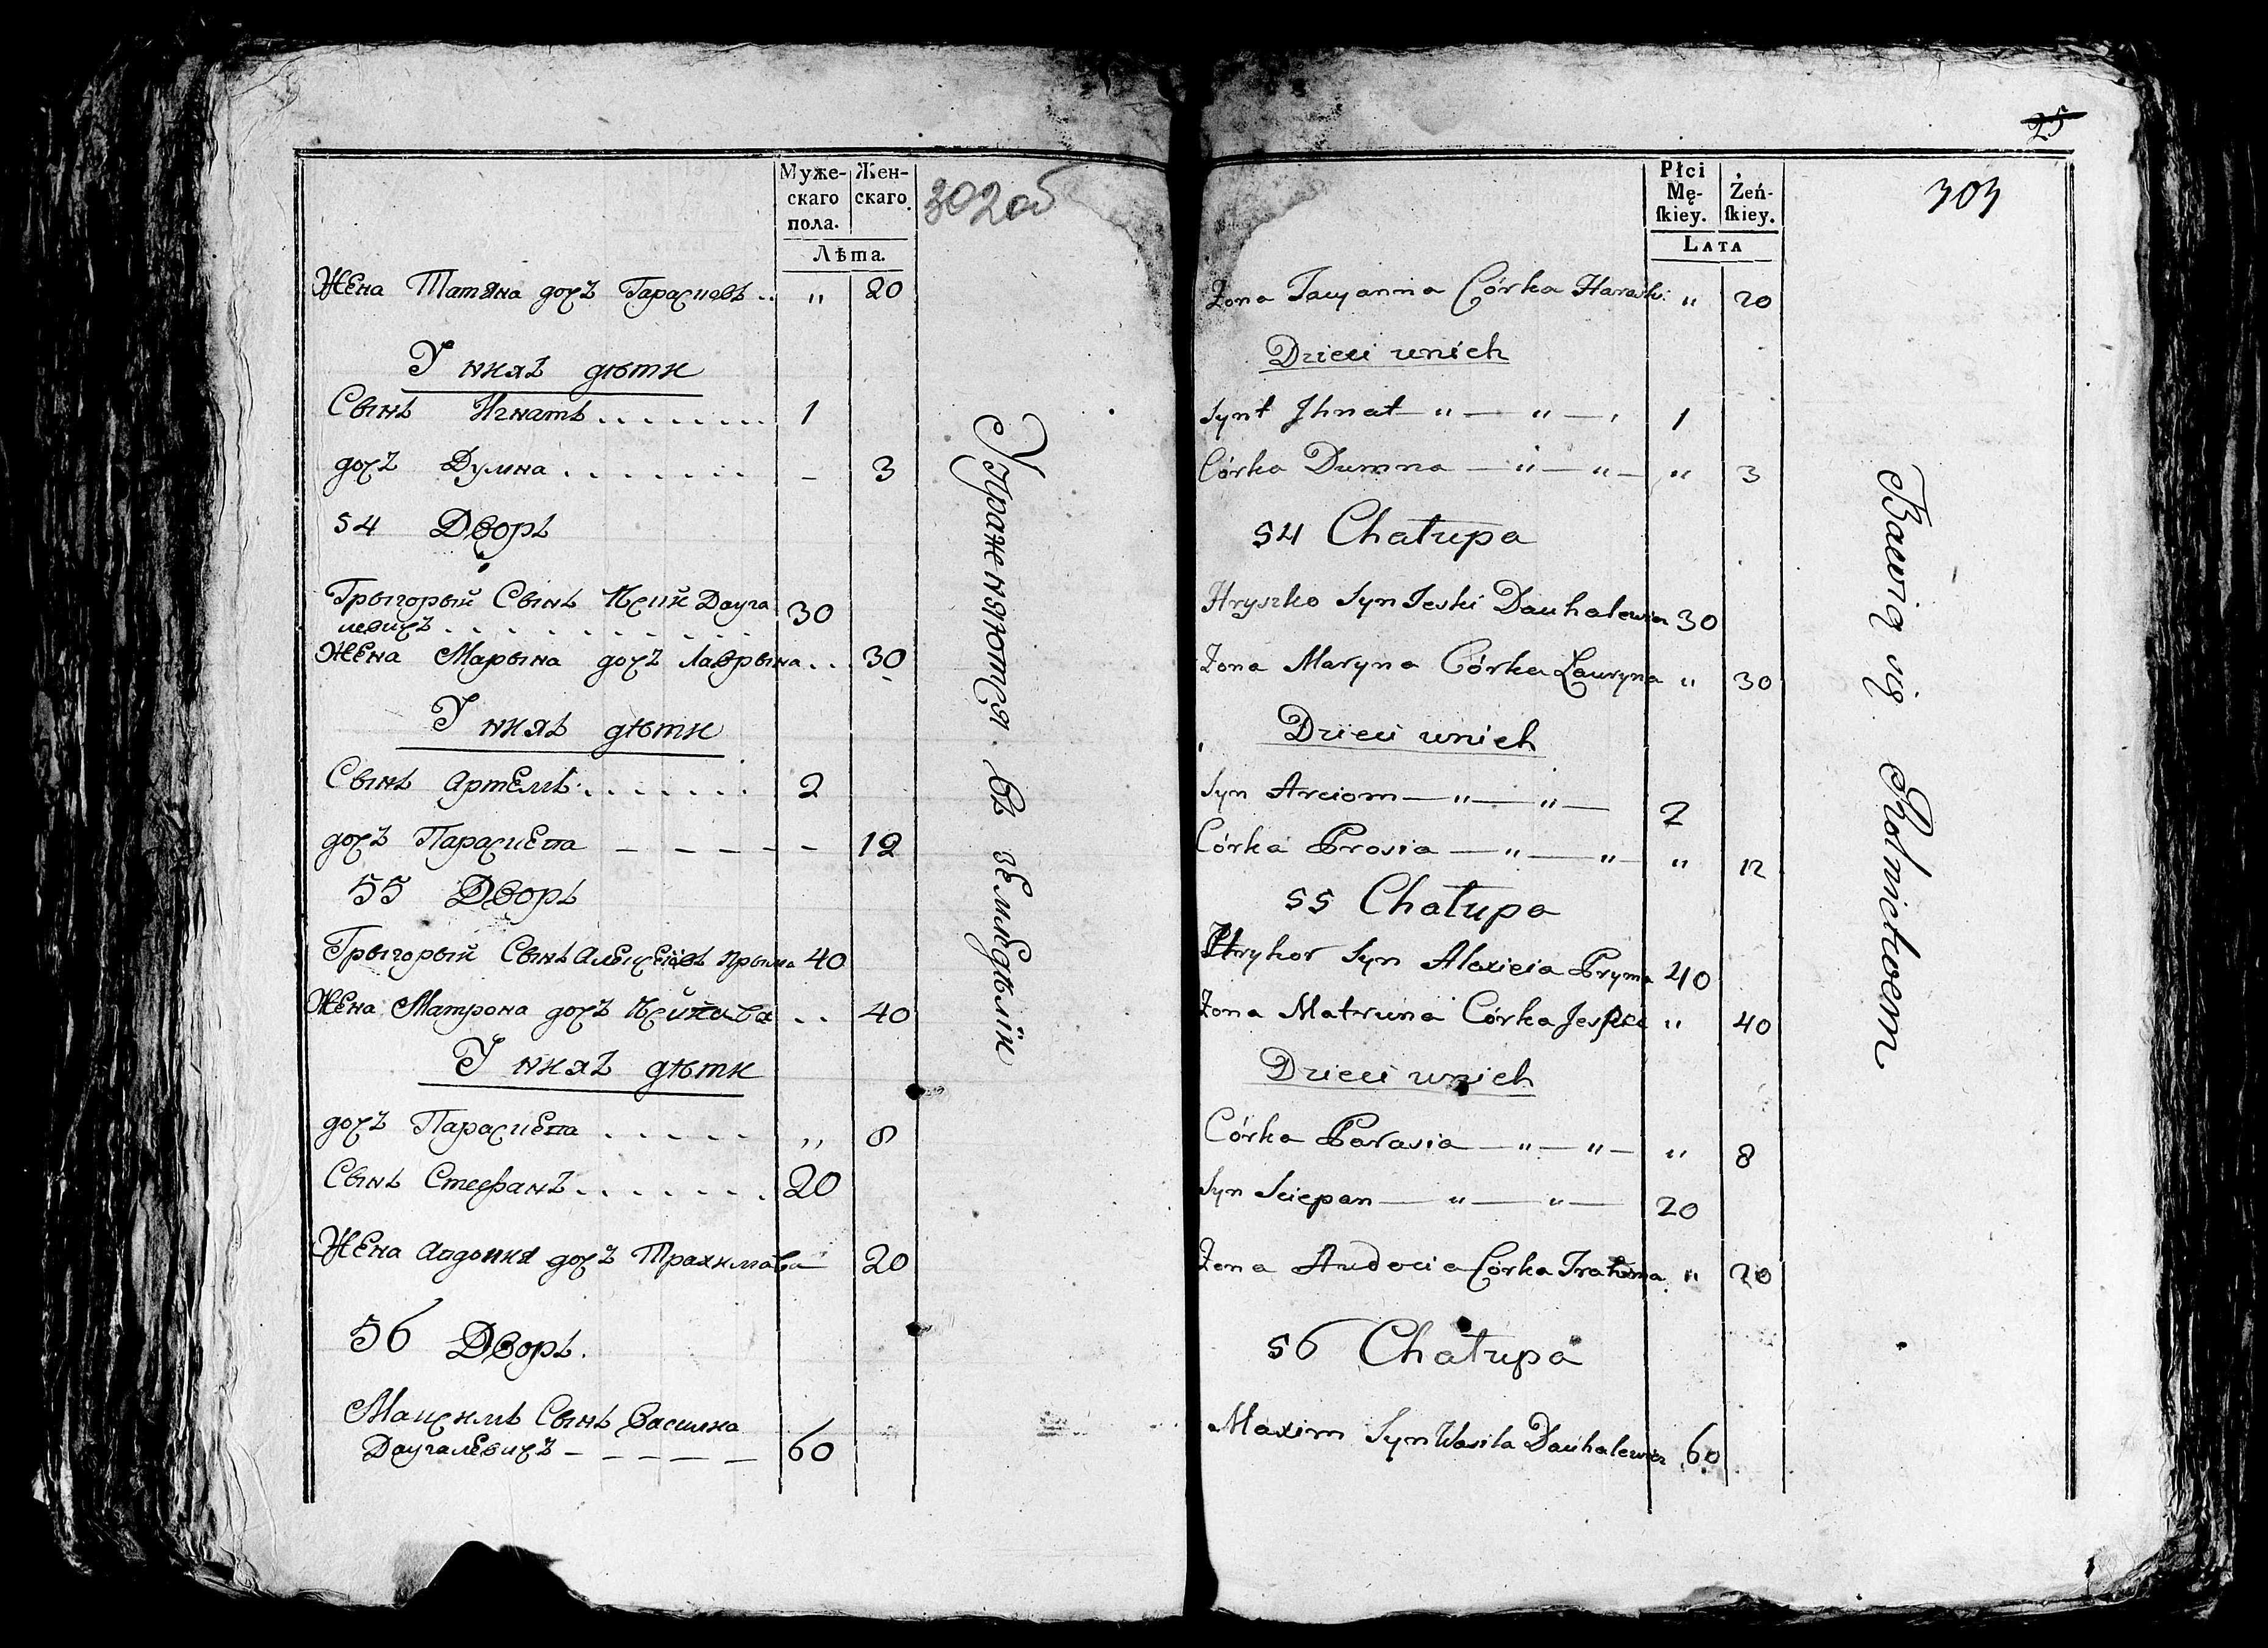 Муже-
скаго
пола.
Жен-
скаго.
Лѣта.
302об
Жена Татяна дочъ Гараисевъ .. " 20
У нихъ дѣти
Сынъ Игнатъ . . . . . . . . 1
дочъ Думна . . . . . . . - 3
54 Дворъ
Грыгорый Сынъ Дауга 30
левичъ . . . . . . . . . .
Жена Марына дочъ Лаврына . . 30
У нихъ дѣти
Сынъ Артемъ . . . . . . . 2
дочъ Параскева — — — — — 12
55 Дворъ
Грыгорый Сынъ Прыма 40
Жена Матрона дочъ . . 40
У нихъ дѣти
дочъ Параскева . . . . . ,, 8
Сынъ Стефанъ . . . . . . . 20
Жена дочъ 20
56 Дворъ.
Максимъ Сынъ Василя
Даугалевичъ — — — — — 60
Упражняются въ земледѣліи
25
303
Płci
Mę-
ſkiey.
Żeń-
ſkiey.
Lata
Żona Tacyanna Córka Haraśki " 20
Dzieci unich
Syn Jhnat — " — " — 1
Córka Dumna — " — " — " 3
54 Chałupa
Hryszko Syn Jeski Dauhalewicz 30
Żona Maryna Córka Lauryna " 30
Dzieci unich
Syn Arciom — " — " — 2
Córka Prosia — " — " — " 12
55 Chałupa
Hryhor Syn Alexieia Pryma 40
Żona Matruna Córka Jeſki " 40
Dzieci unich
Córka Parasia — " — " — " 8
Syn Sciepan — " — " — 20
Żona Audocia Córka Trahima " 20
56 Chałupa
Maxim Syn Wasila Dauhalewicz 60
Bawią się Rolnictwem